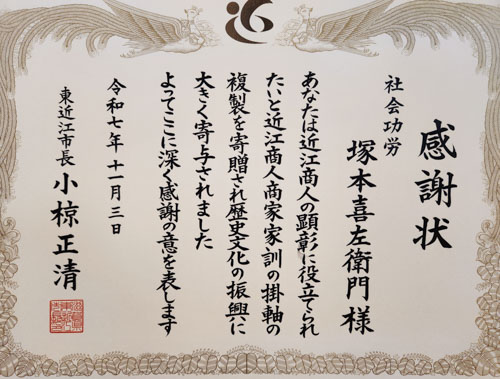 感謝状
社会功労
塚本喜左衛門様
あなたは近江商人の顕彰に役立てられ
たいと近江商人商家家訓の掛軸の
複製を寄贈され歴史文化の振興に
大きく寄与されました
よってここに深く感謝の意を表します
令和七年十一月三日
東近江市長 小椋正清